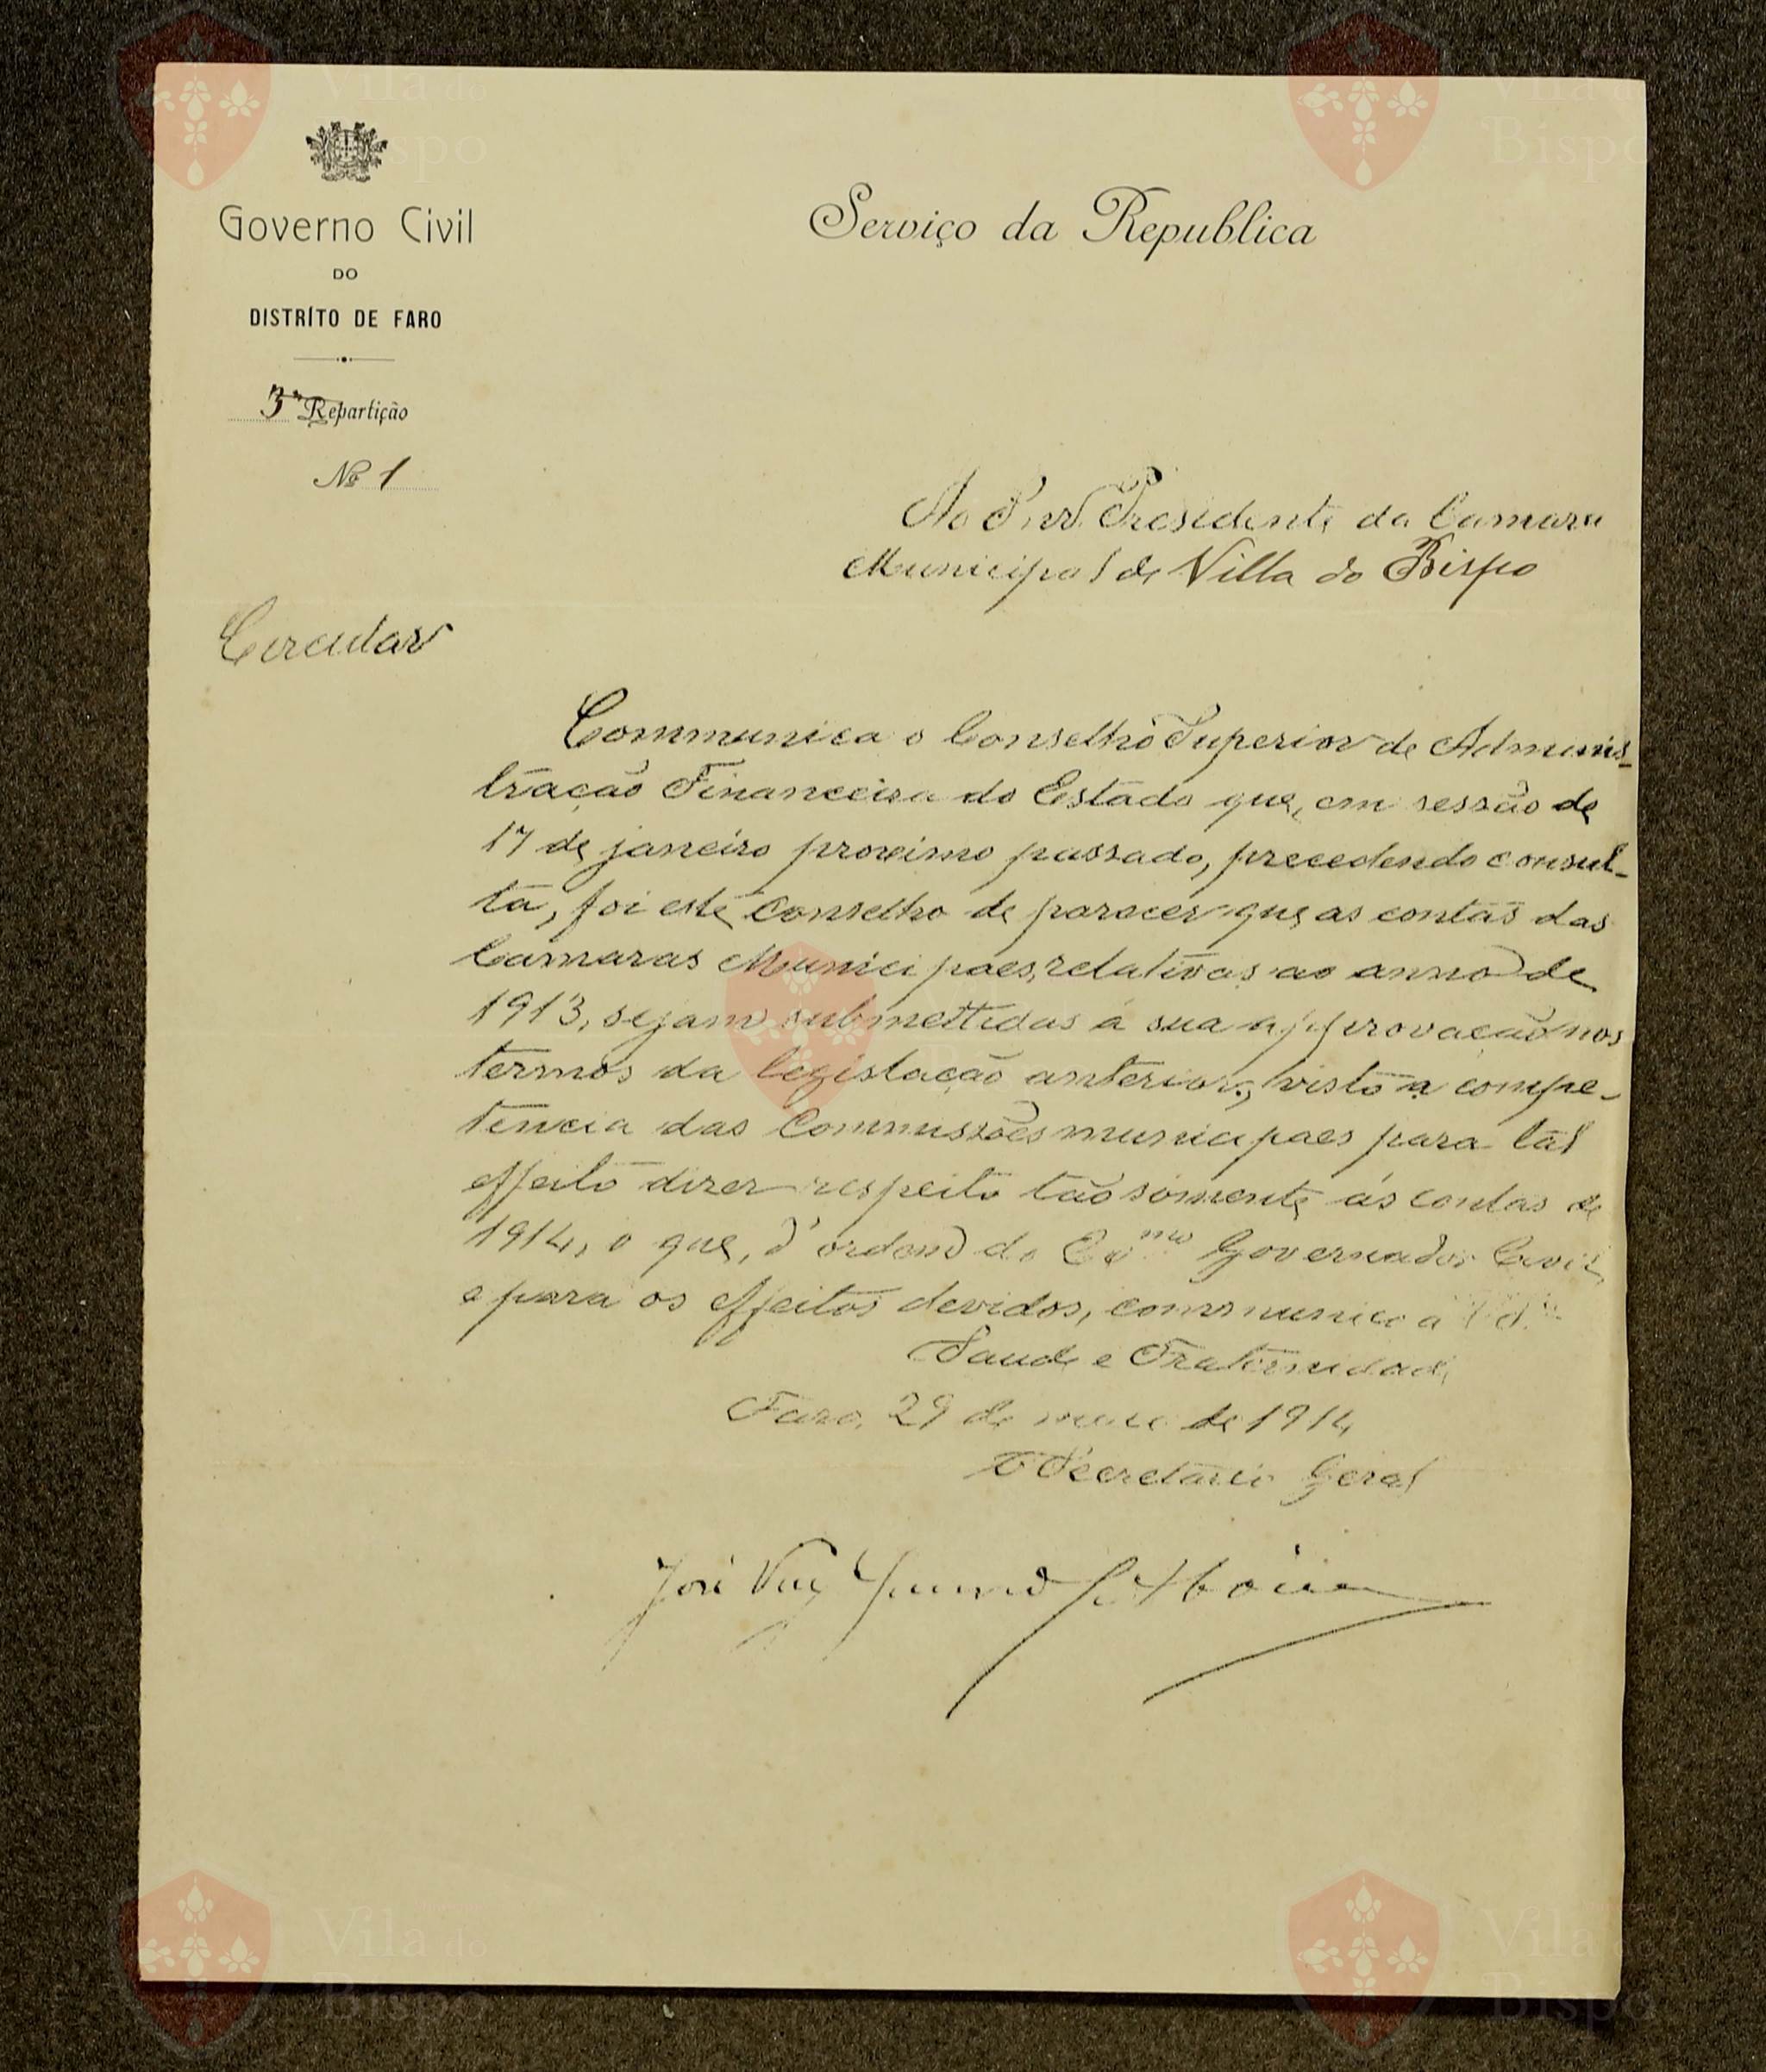 Governo Civil
DO
DISTRÍTO DE FARO
3ª Repartição
Nº 1
Serviço da Republica
Ao Snr. Presidente da Camara
Municipal de Villa do Bispo
Circular
Communica o Conselho Superior de Adminis-
tração Financeira do Estado que, em sessão de
17 de janeiro proximo passado, precedendo consul-
ta, foi este Conselho de parecer que as contas das
Camaras Municipaes, relativas ao anno de
1913, sejam submettidas á sua approvação nos
termos da legislação anterior, visto a compe-
tencia das Commissões municipaes para tal
effeito dizer respeito tão sómente ás contas de
1914, o que, d'ordem do Exmo Governador Civil,
e para os effeitos devidos, communico a
Saude e Fraternidade
Faro, 29 de de 1914
O Secretario Geral
José
Vila do
Bispo
Vila do
Bispo
Vila do
Bispo
Vila do
Bispo